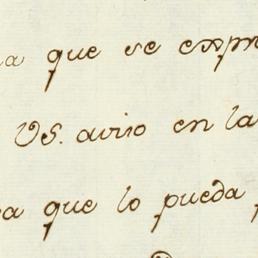 a que se exp
VS. aviso en la
a que lo pueda